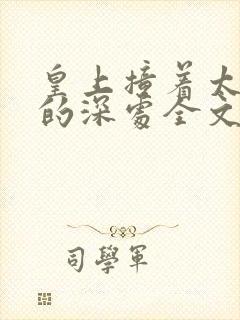 皇上撞着太
的深处全文
司學軍